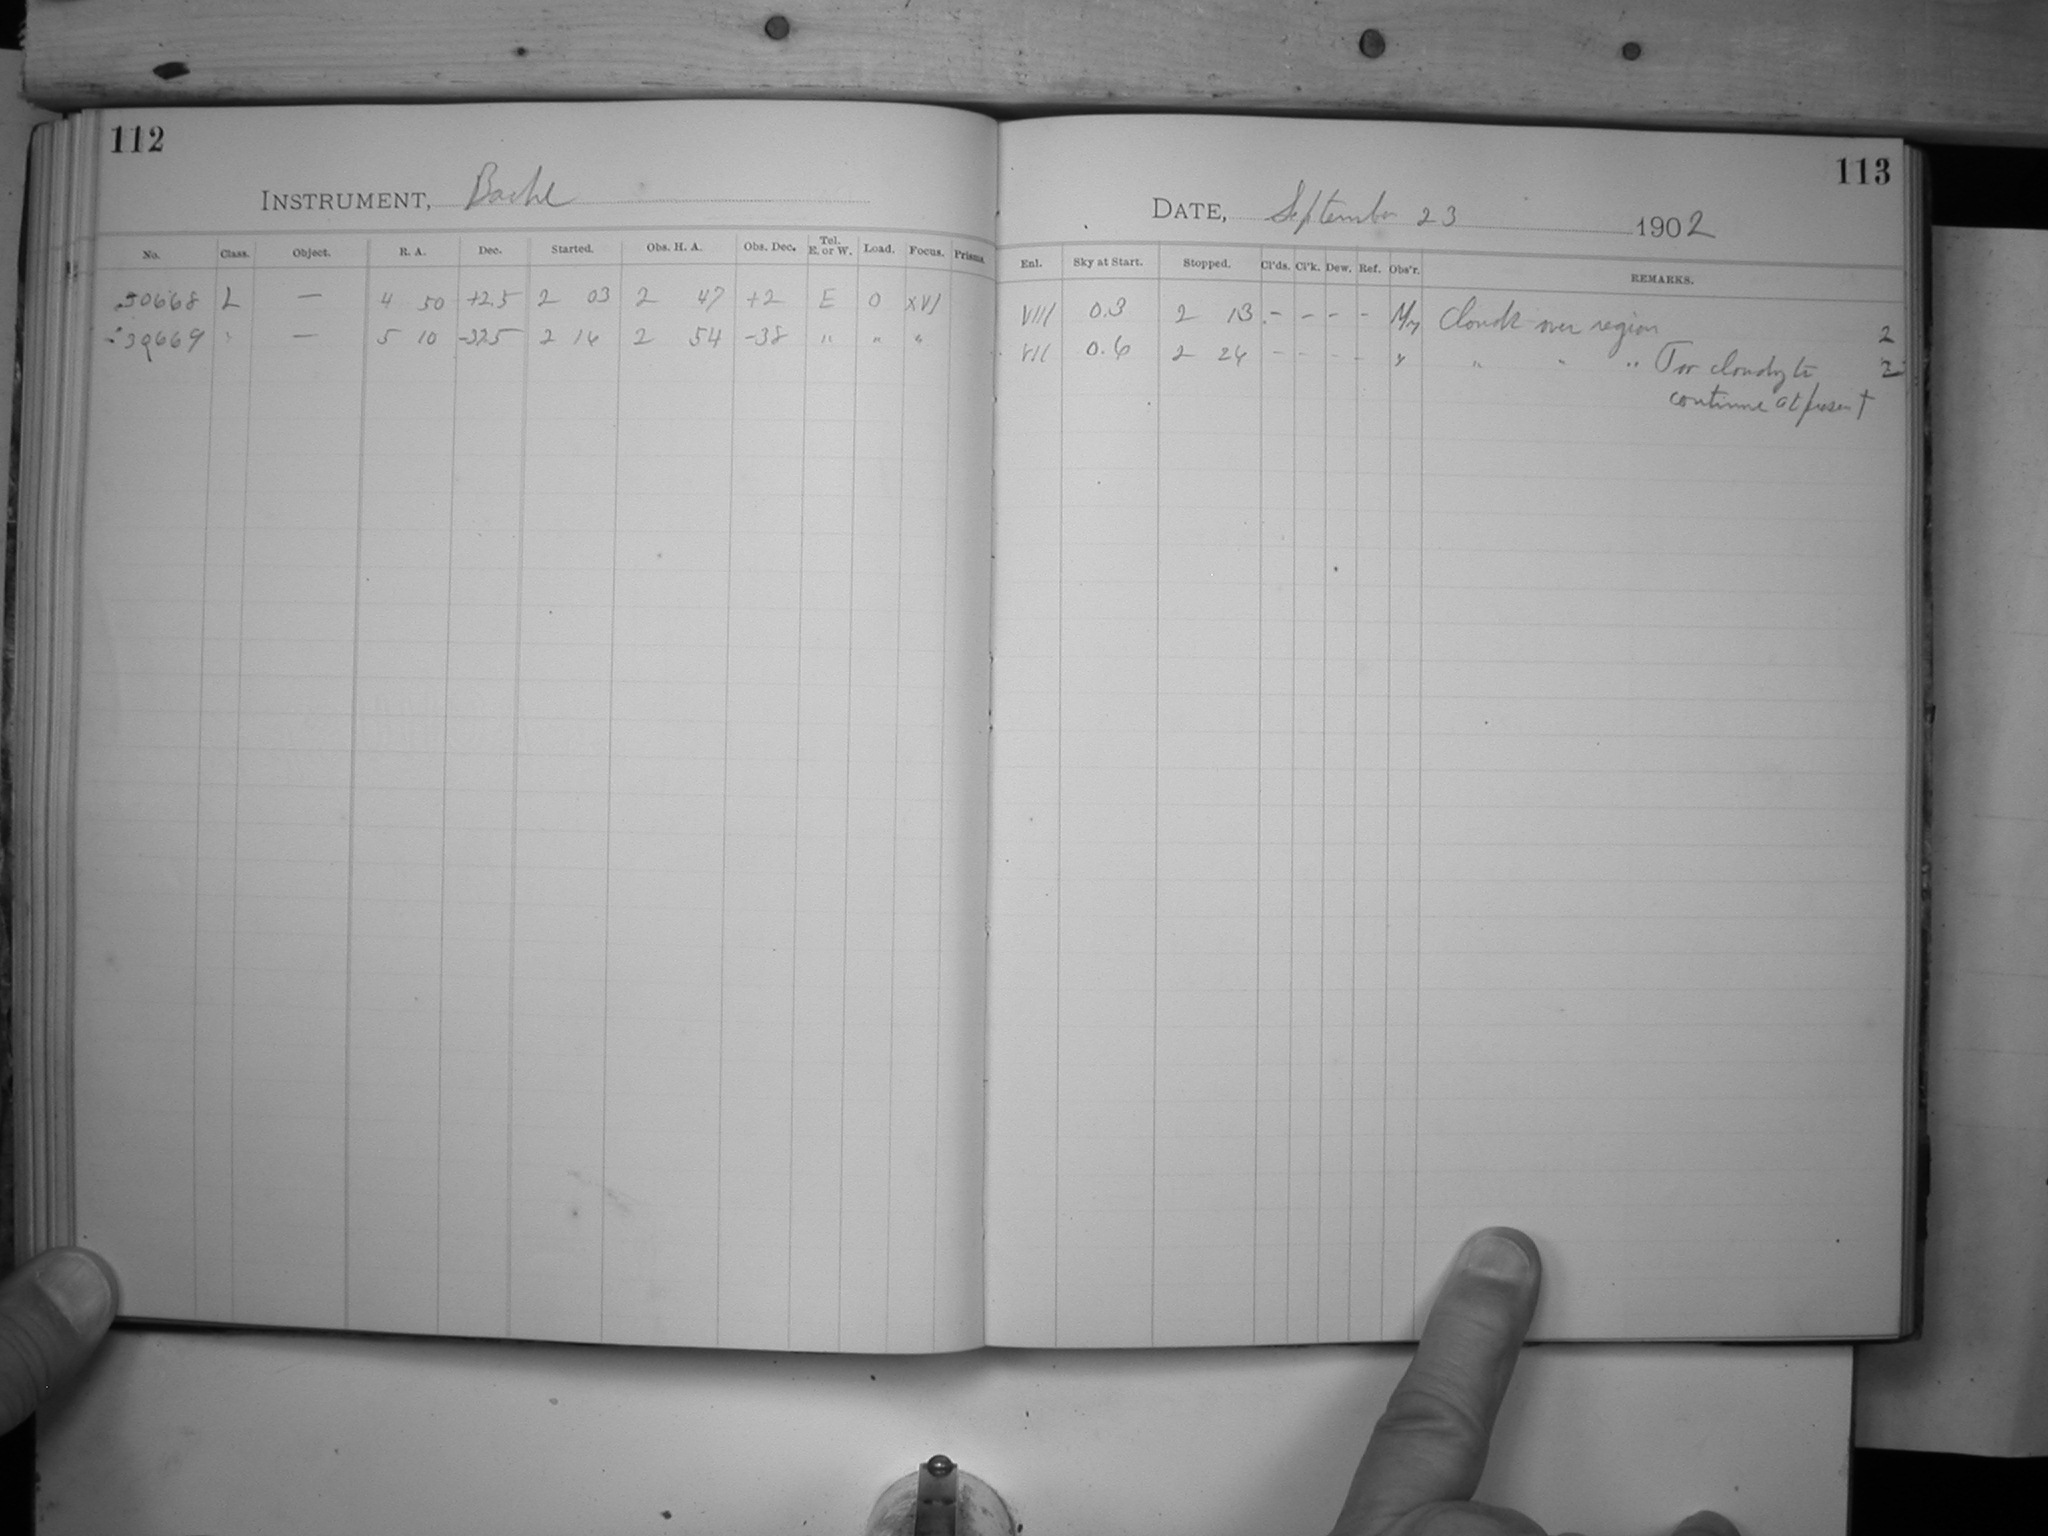 112
INSTRUMENT, Bache
No. Class. Object. R. A. Dec. Started. Obs. H. A. Obs. Dec. Tel. E. or W. Load. Focus. Prisms.
30668 L — 4 50 +2.5 2 03 2 47 +2 E 0 XVI
30669 " — 5 10 -32.5 2 14 2 54 -38 " " "
113
DATE, September 23 1902
Enl. Sky at Start. Stopped. Cl'ds. Cl'k. Dew. Ref. Obs'r. REMARKS.
VIII 0.3 2 13 - - - - My Clouds over region 2
VII 0.6 2 24 - - - - " " " " Too cloudy to 2
continue at present